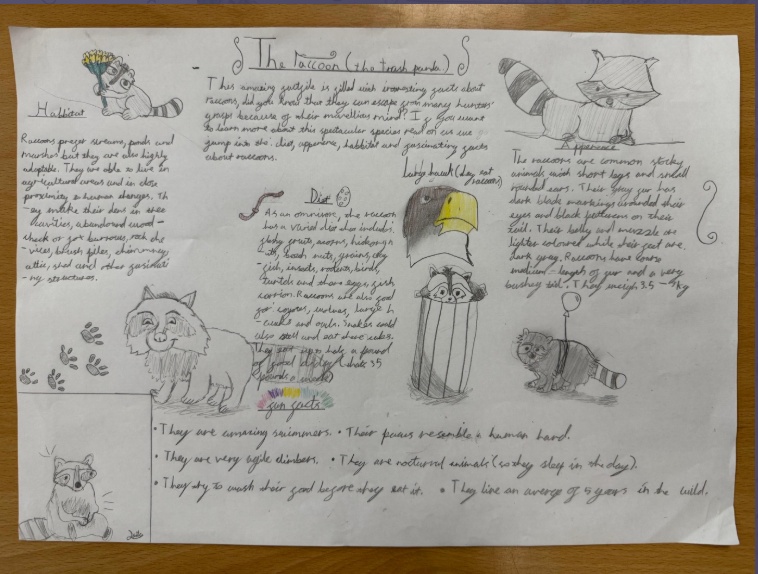 The raccoon (the trash panda)
This amazing factfile is filled with interesting facts about
racoons, did you know that they can escape from many hunters'
grasp because of their marvellous mind? If you want
to learn more about this spectacular species read on as we
jump into the: diet, apperence, habbitat and fascinating facts
about raccoons.
Habbitat
Raccoons prefer streams, ponds and
marshes but they are also highly
adaptable. They are able to live in
agricultural areas and in close
proximity to human
Th
-ey make their dens in tree
cavities, abandoned wood-
chuck or fox burrows, rock cre
-vices, brush piles, chimney,
attic, shed and other
structures.
Diet
As an omnivore, the racoon
has a varied diet that includes:
fleshy fruits, acorns, hickory n
-uts, beech nuts, grains, cray
-fish, insects, rodents, birds,
turtels and there eggs, fish
carrion. Raccoons are also food
for: coyotes, wolves, large h
-awks and owls. Snakes could
also
and eat there
They eat up to half a pound
of food
3.5
pounds a week)
Large hawk (they eat
raccoons)
Apperence
The raccoons are common stocky
animals with short legs and small
rounded ears. Their gray fur has
dark
markings
their
eyes and black patterns on their
tail. Their belly and muzzle are
lighter coloured while their feet are
dark gray. Raccoons have
medium-length of fur and a very
bushy tail. They weigh 3.5 - 9kg
fun facts
• They are amazing swimmers. • Their paws resemble a human hand.
• They are very agile climbers. • They are nocturnal animals (so they sleep in the day).
• They try to wash their food before they eat it. • They live an average of 5 years in the wild.